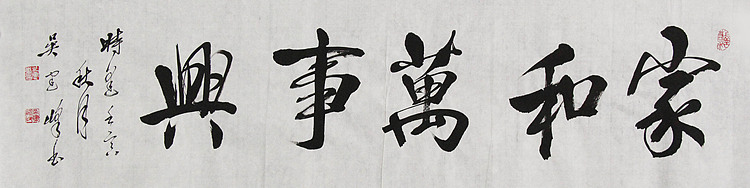 家和萬事興
時逢壬寅
秋月
吳峰书